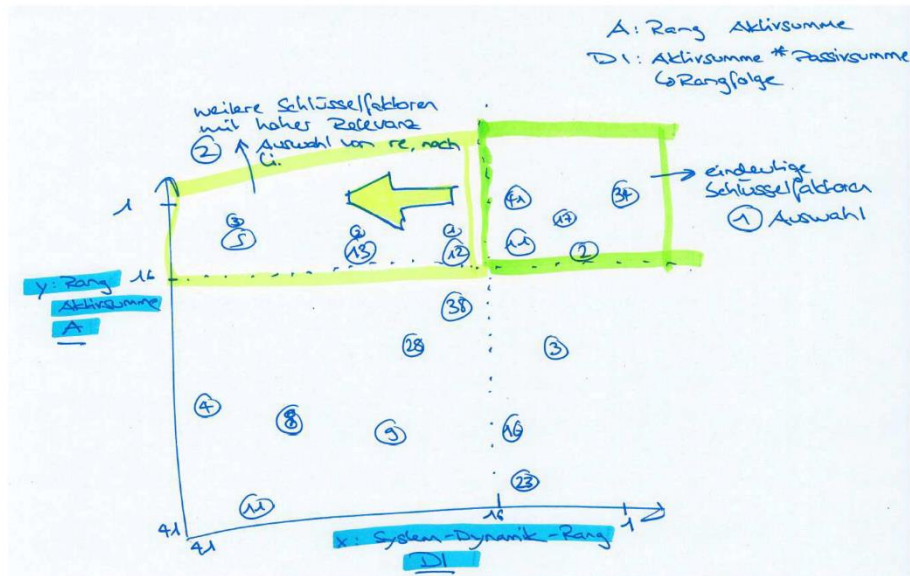 A: Rang Aktivsumme
DI: Aktivsumme * Passivsumme
↳ Rangfolge
weitere Schlüsselfaktoren
mit hoher Relevanz
② Auswahl von re, nach
li.
→ eindeutige
Schlüsselfaktoren
① Auswahl
1
41
34
17
3
5
2
13
1
12
11
2
y: Rang
Aktivsumme
A
16
38
28
3
4
8
9
16
11
23
41
41
16
1
x: System-Dynamik-Rang
DI